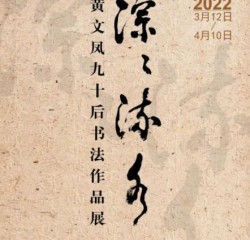 深深流水
黄文凤九十后书法作品展
2022
3月12日
/
4月10日